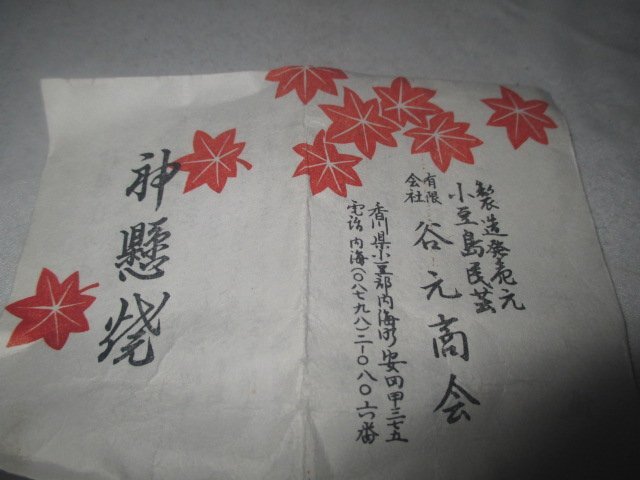 製造発売元
小豆島民芸
有限会社 谷元商会
香川県小豆郡内海町安田甲二七五
電話 内海(〇八七九八)二-〇八〇六番
神懸焼